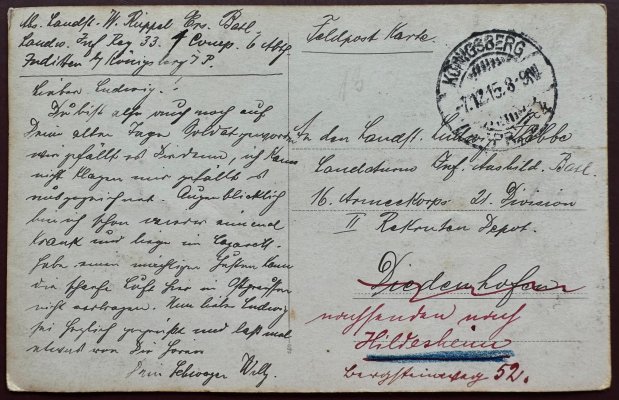 Abs. Landst. W. Rüppel Ers. Batl.
Landw. Inf. Reg. 33. 1 Comp. 6 Abtlg
Juditten b/ Königsberg i/P.
Lieber Ludwig!
Du bist also auch noch auf
Deine alten Tage Soldat geworden
wie gefällt es Dir denn, ich kann
nicht klagen mir gefällt es
ausgezeichnet. Augenblicklich
bin ich schon wieder einmal
krank und liege im Lazarett
habe einen mächtigen Husten kann
die scharfe Luft hier in Ostpreußen
nicht vertragen. Nun lieber Ludwig
sei herzlich gegrüßt und laß mal
etwas von Dir hören
Dein Schwager Willy
Feldpost Karte.
KÖNIGSBERG
7.12.15. 8-9N
An den Landst. Ludwig
Landsturm Inf. Ausbild. Batl.
16. Armeekorps 21. Division
II Rekruten Depot.
Diedenhofen
nachsenden nach
Hildesheim
Bergsteinweg 52.